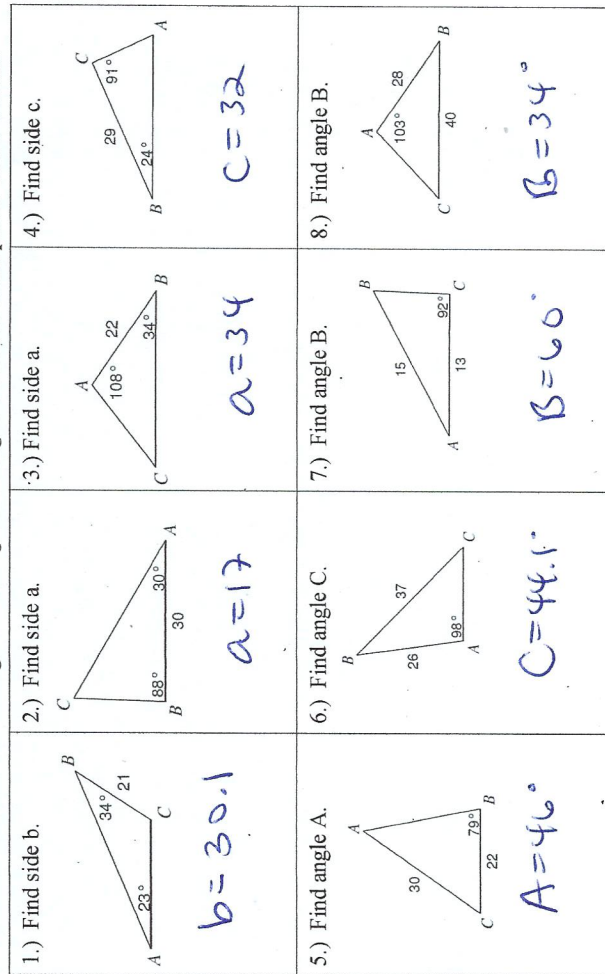 1.) Find side b.
B
34°
21
23°
A
C
b=30.1
2.) Find side a.
C
88°
30°
A
B
30
a=17
3.) Find side a.
A
108°
22
34°
C
B
a=34
4.) Find side c.
C
91°
29
24°
B
A
C=32
5.) Find angle A.
A
30
79°
C
22
B
A=46°
6.) Find angle C.
B
26
37
98°
A
C
C=44.1°
7.) Find angle B.
B
15
92°
A
13
C
B=60°
8.) Find angle B.
A
103°
28
C
40
B
B=34°